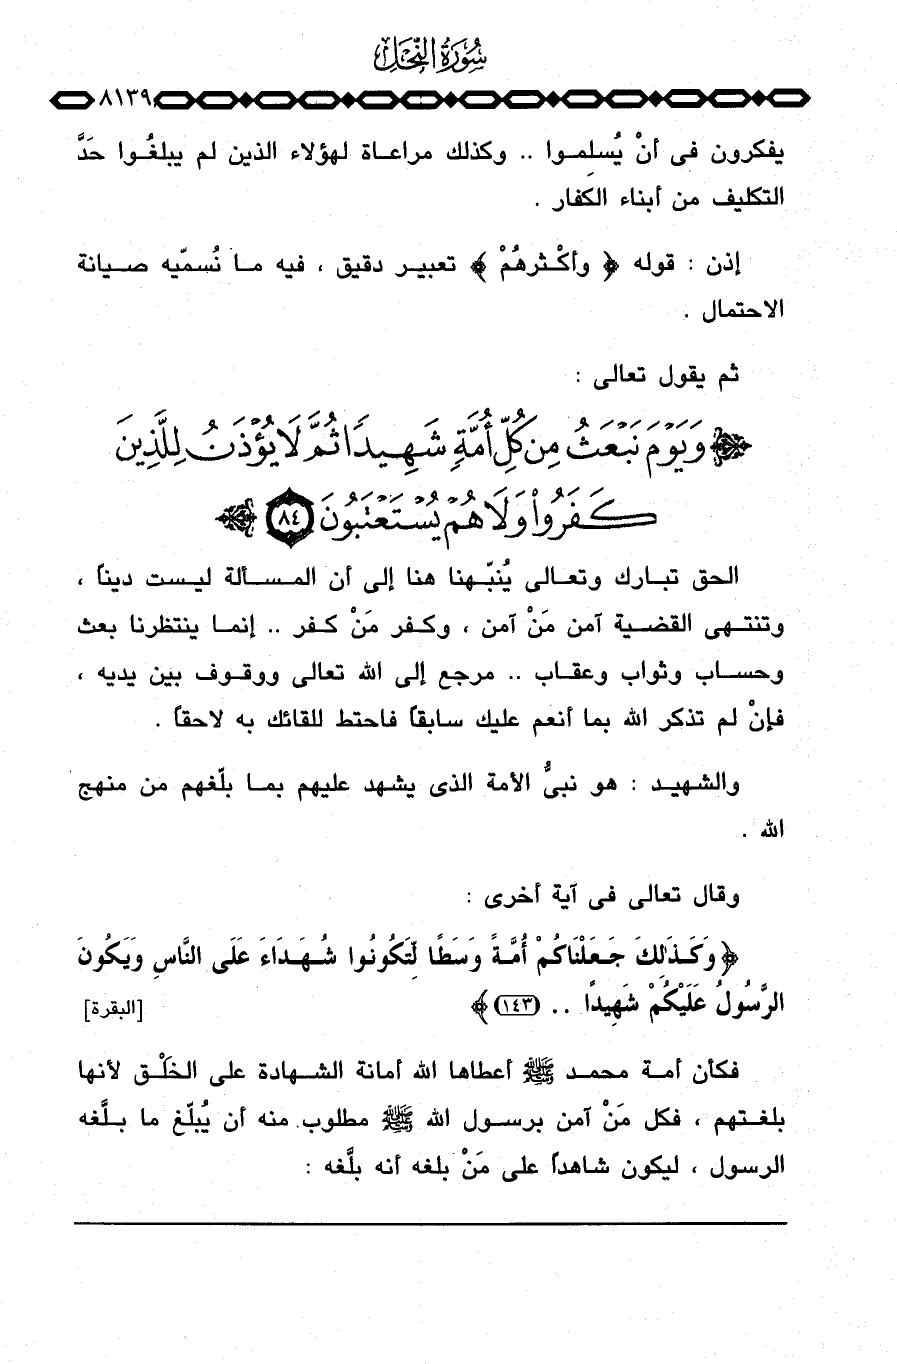 سُورَةُ النَّحْل
٨١٣٩
يفكرون فى أنْ يُسلِموا .. وكذلك مراعاة لهؤلاء الذين لم يبلغُوا حَدَّ
التكليف من أبناء الكفار .
إذن : قوله ﴿ وأكْثرهُمْ ﴾ تعبير دقيق ، فيه ما نُسمّيه صيانة
الاحتمال .
ثم يقول تعالى :
﴿ وَيَوْمَ نَبْعَثُ مِن كُلِّ أُمَّةٍ شَهِيدًا ثُمَّ لَا يُؤْذَنُ لِلَّذِينَ
كَفَرُوا۟ وَلَا هُمْ يُسْتَعْتَبُونَ ٨٤ ﴾
الحق تبارك وتعالى يُنبّهنا هنا إلى أن المسألة ليست ديناً ،
وتنتهى القضية آمن مَنْ آمن ، وكفر مَنْ كفر .. إنما ينتظرنا بعث
وحساب وثواب وعقاب .. مرجع إلى الله تعالى ووقوف بين يديه ،
فإنْ لم تذكر الله بما أنعم عليك سابقاً فاحتط للقائك به لاحقاً .
والشهيد : هو نبىُّ الأمة الذى يشهد عليهم بما بلّغهم من منهج
الله .
وقال تعالى فى آية أخرى :
﴿ وَكَذَٰلِكَ جَعَلْنَاكُمْ أُمَّةً وَسَطًا لِّتَكُونُوا شُهَدَاءَ عَلَى النَّاسِ وَيَكُونَ
الرَّسُولُ عَلَيْكُمْ شَهِيدًا .. (١٤٣) ﴾ [البقرة]
فكأن أمة محمد ﷺ أعطاها الله أمانة الشهادة على الخَلْق لأنها
بلغتهم ، فكل مَنْ آمن برسول الله ﷺ مطلوب منه أن يُبلّغ ما بلَّغه
الرسول ، ليكون شاهداً على مَنْ بلغه أنه بلَّغه :